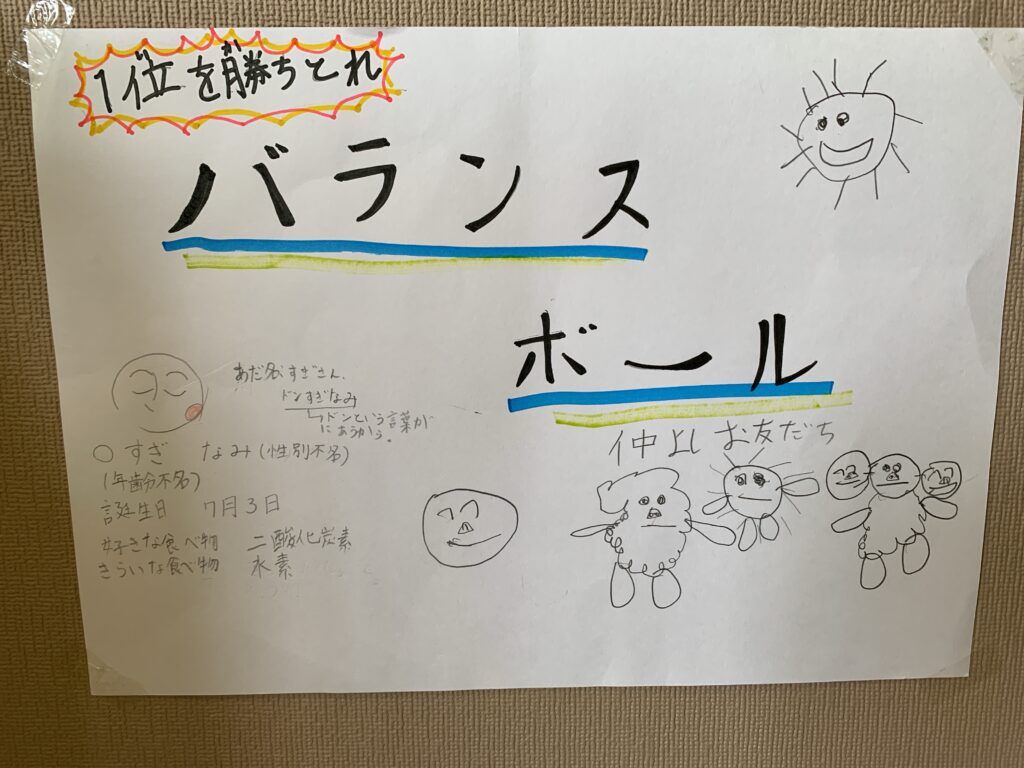 1位を勝ちとれ
か
バランス
ボール
あだ名 すぎさん、
ドンすぎなみ
ドンという言葉が
にあうから。
○すぎ なみ(性別不名)
(年齢不名)
誕生日 7月3日
好きな食べ物 二酸化炭素
きらいな食べ物 水素
仲よしお友だち